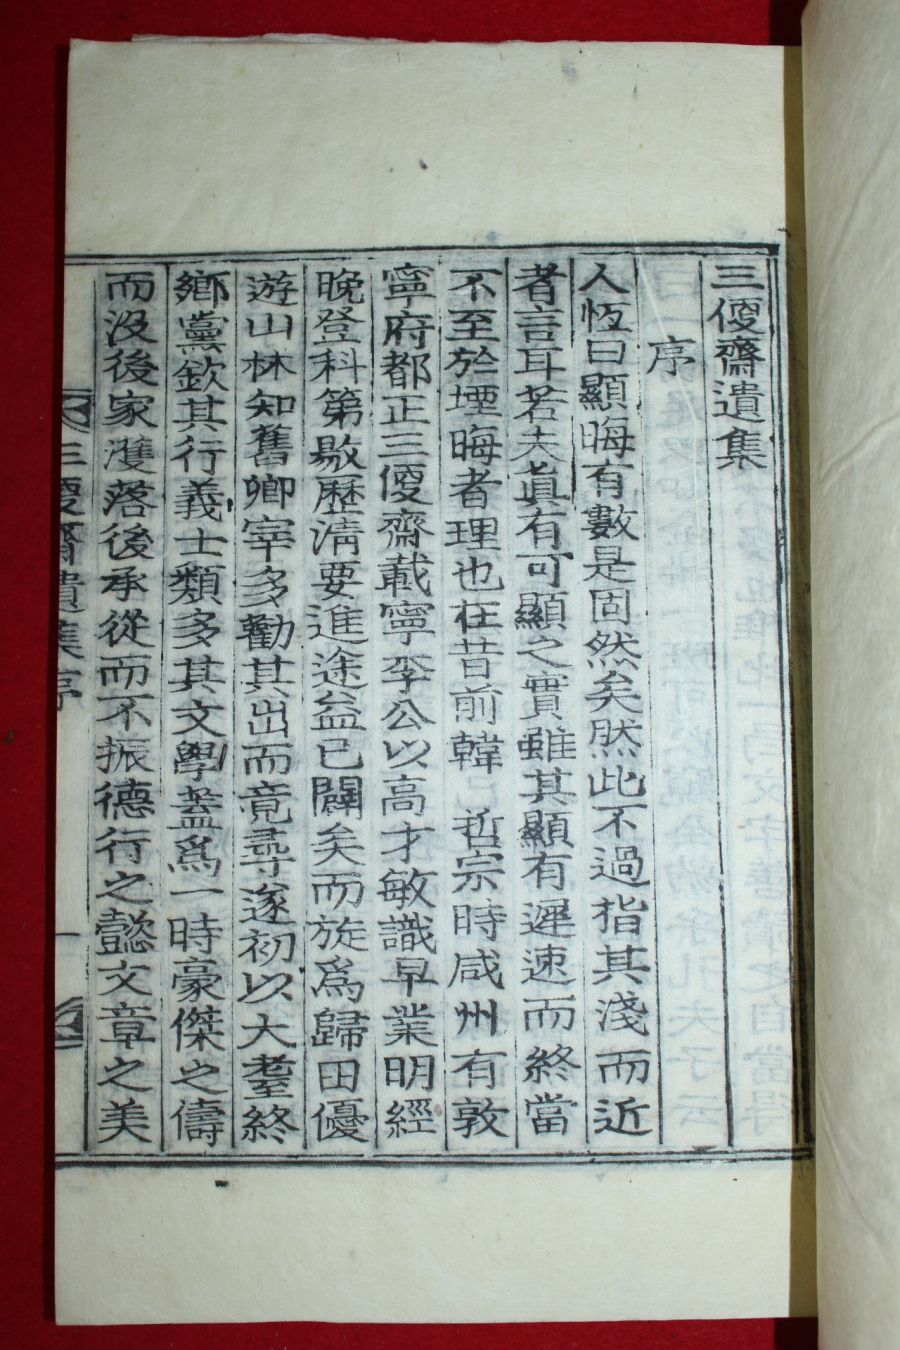 三傻齋遺集
序
人恆曰顯晦有數是固然矣然此不過指其淺而近
者言耳若夫眞有可顯之實雖其顯有遲速而終當
不至於堙晦者理也在昔前韓 哲宗時咸州有敦
寧府都正三傻齋載寧李公以高才敏識早業明經
晚登科第敭歷淸要進途益已闢矣而旋爲歸田優
遊山林知舊卿宰多勸其出而竟尋遂初以大耋終
鄕黨欽其行義士類多其文學盖爲一時豪傑之儔
而沒後家濩落後承從而不振德行之懿文章之美
三傻齋遺集序 一